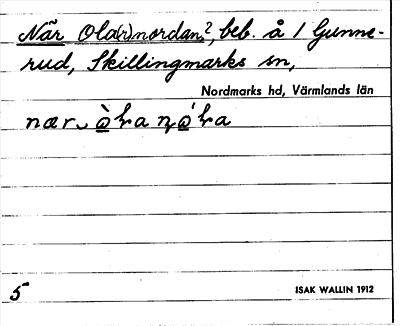 När Ola(r)nordan?, beb. å 1 Gunne-
rud, Skillingmarks sn,
Nordmarks hd, Värmlands län
nær
5
ISAK WALLIN 1912